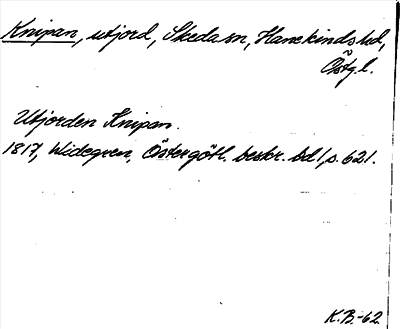 Knipan, utjord, Skeda sn, Hanekinds hd,
Östg.l.
Utjorden Knipan.
1817, Widegren, Östergötl. beskr. bd 1, s. 621.
K.B.-62